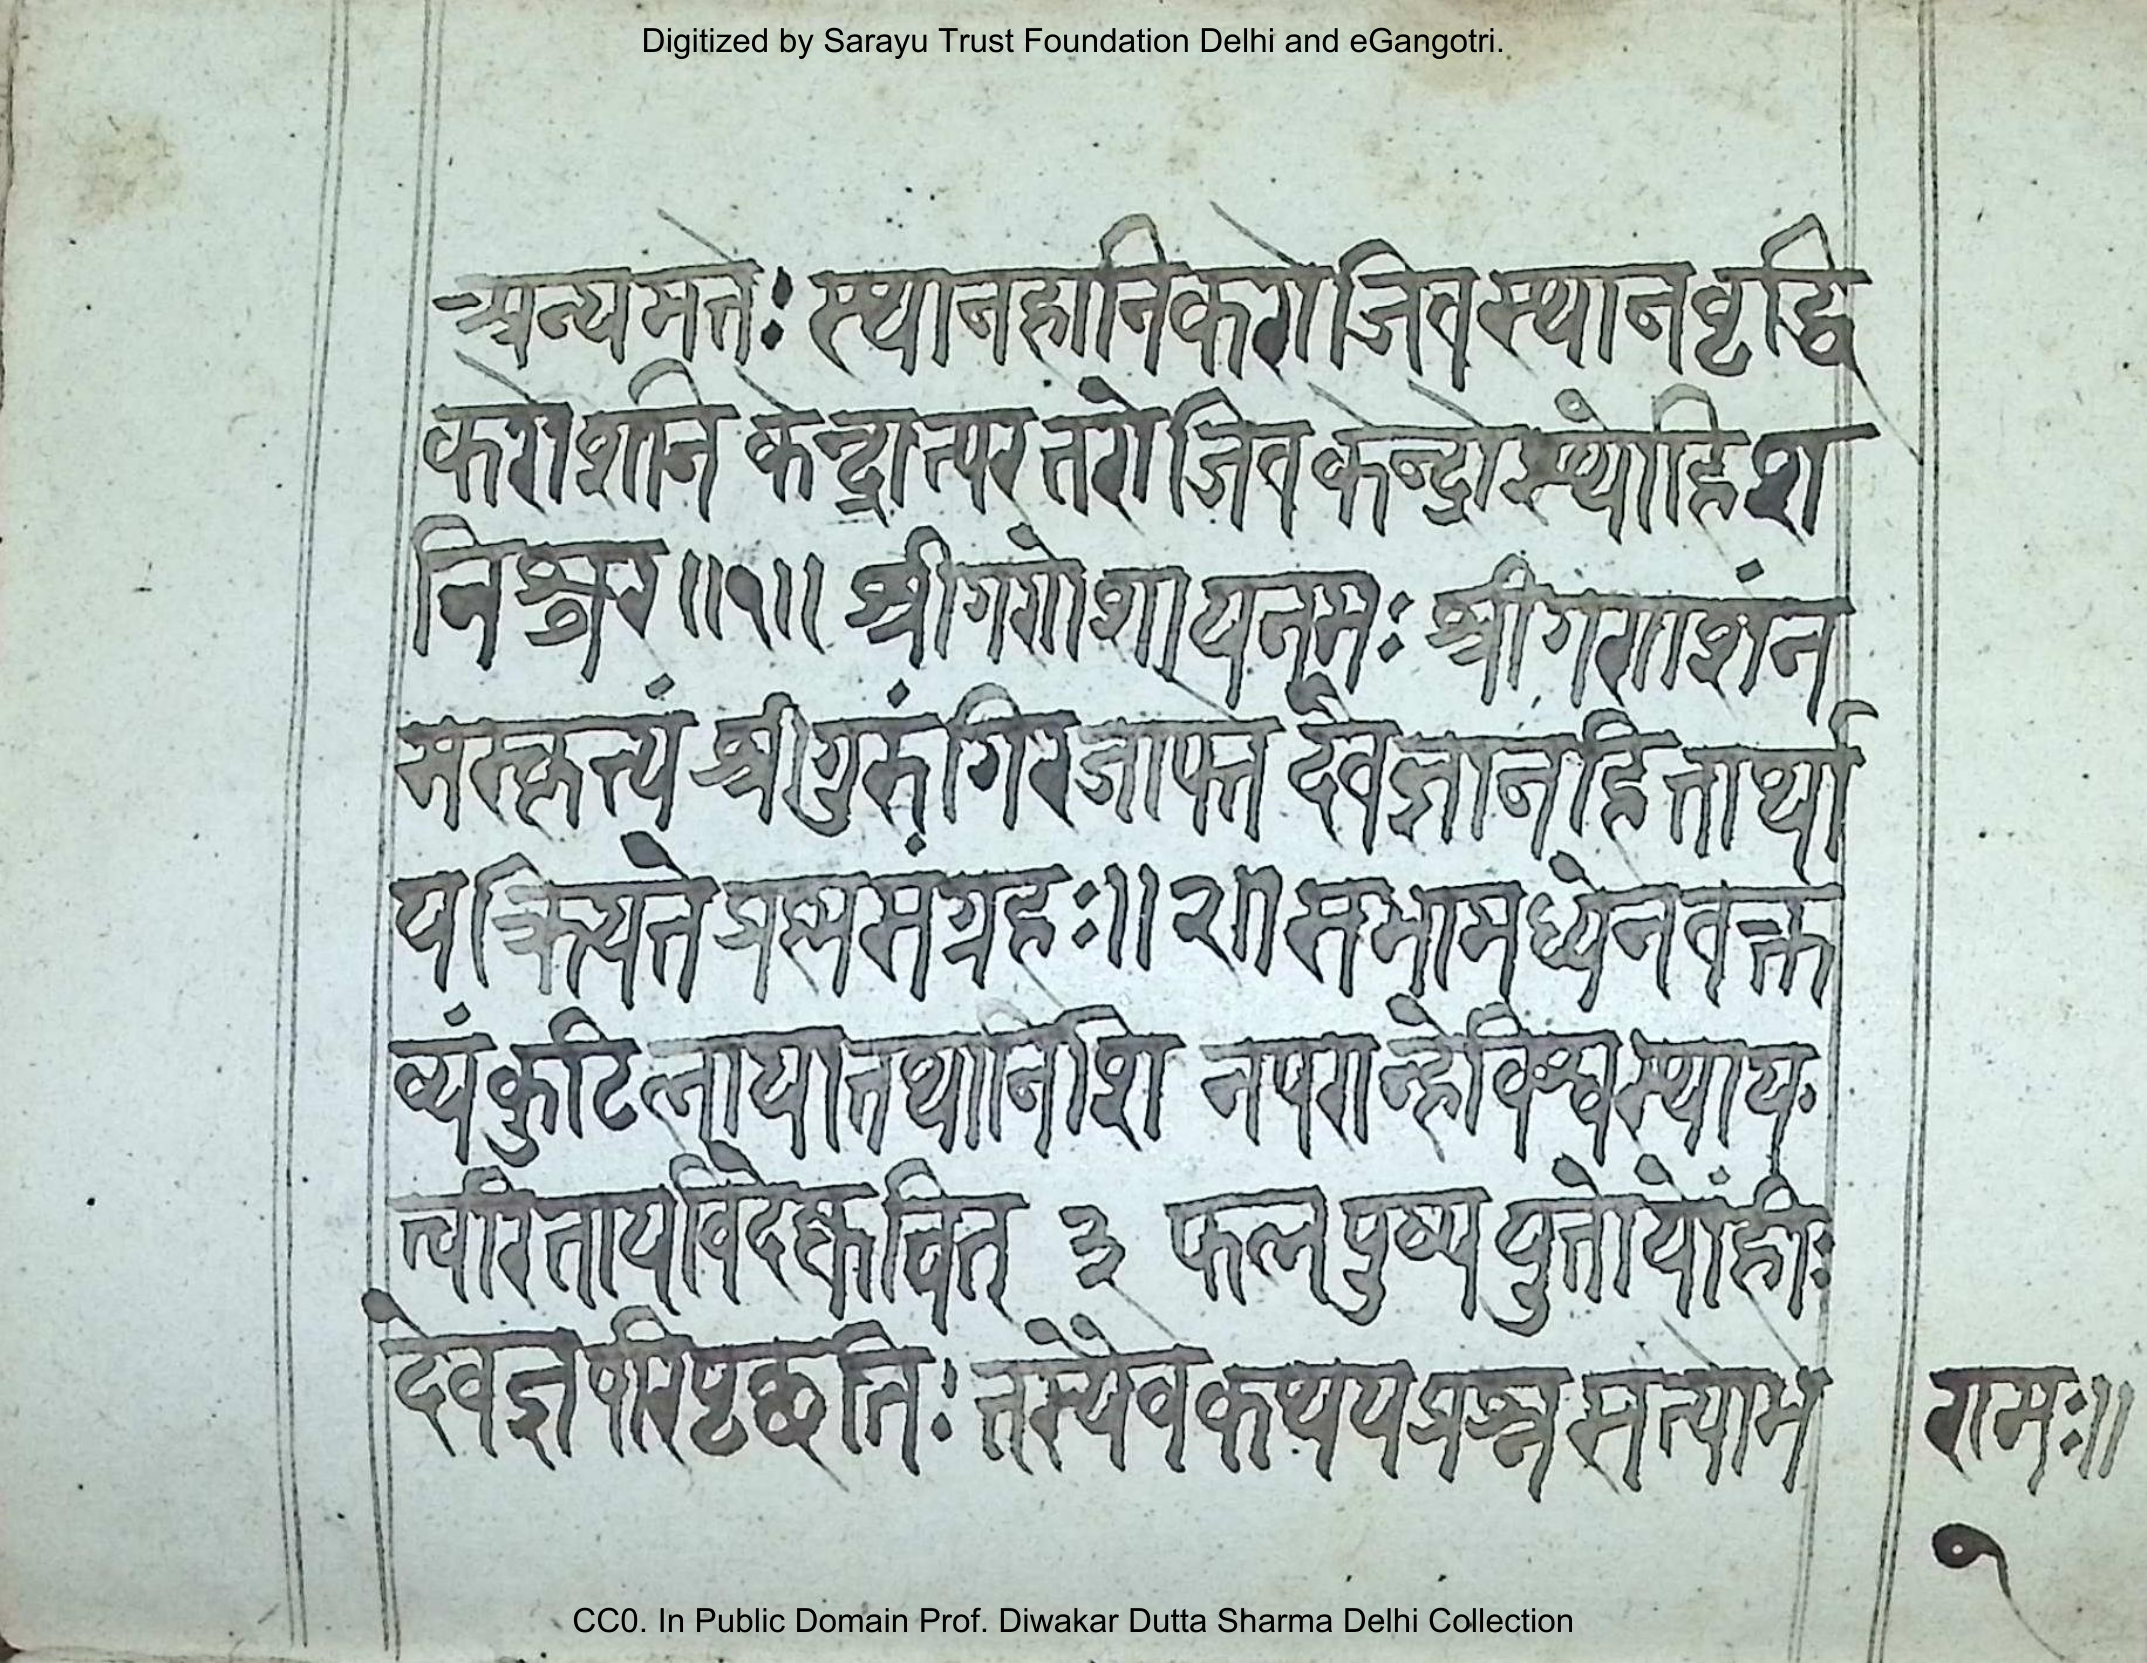 Digitized by Sarayu Trust Foundation Delhi and eGangotri.
अन्यमत्ते: स्थानहानिकरो जिवस्थानवृद्धि
करोशनि केन्द्रात्परत्तरो जिव केन्द्रोस्थोहिश
निश्चर ॥१॥ श्रीगणेशायनमः श्रीगणाशंन
मस्कृत्यं श्रीगुरुंगिरजाप्त देवज्ञानहित्तार्था
यक्रियत्ते प्रश्नसंग्रहः॥२॥ सभामध्येनवक्त
व्यं कुटिलायात्तथानिशि नपरान्हेविश्वस्थाय
त्वरित्ताय 3 फलपुष्पयुत्तोयोंहीः
देवज्ञपरिपृछतिः तस्यैवकथयप्रश्नसत्याम
रामः॥
१
CC0. In Public Domain Prof. Diwakar Dutta Sharma Delhi Collection